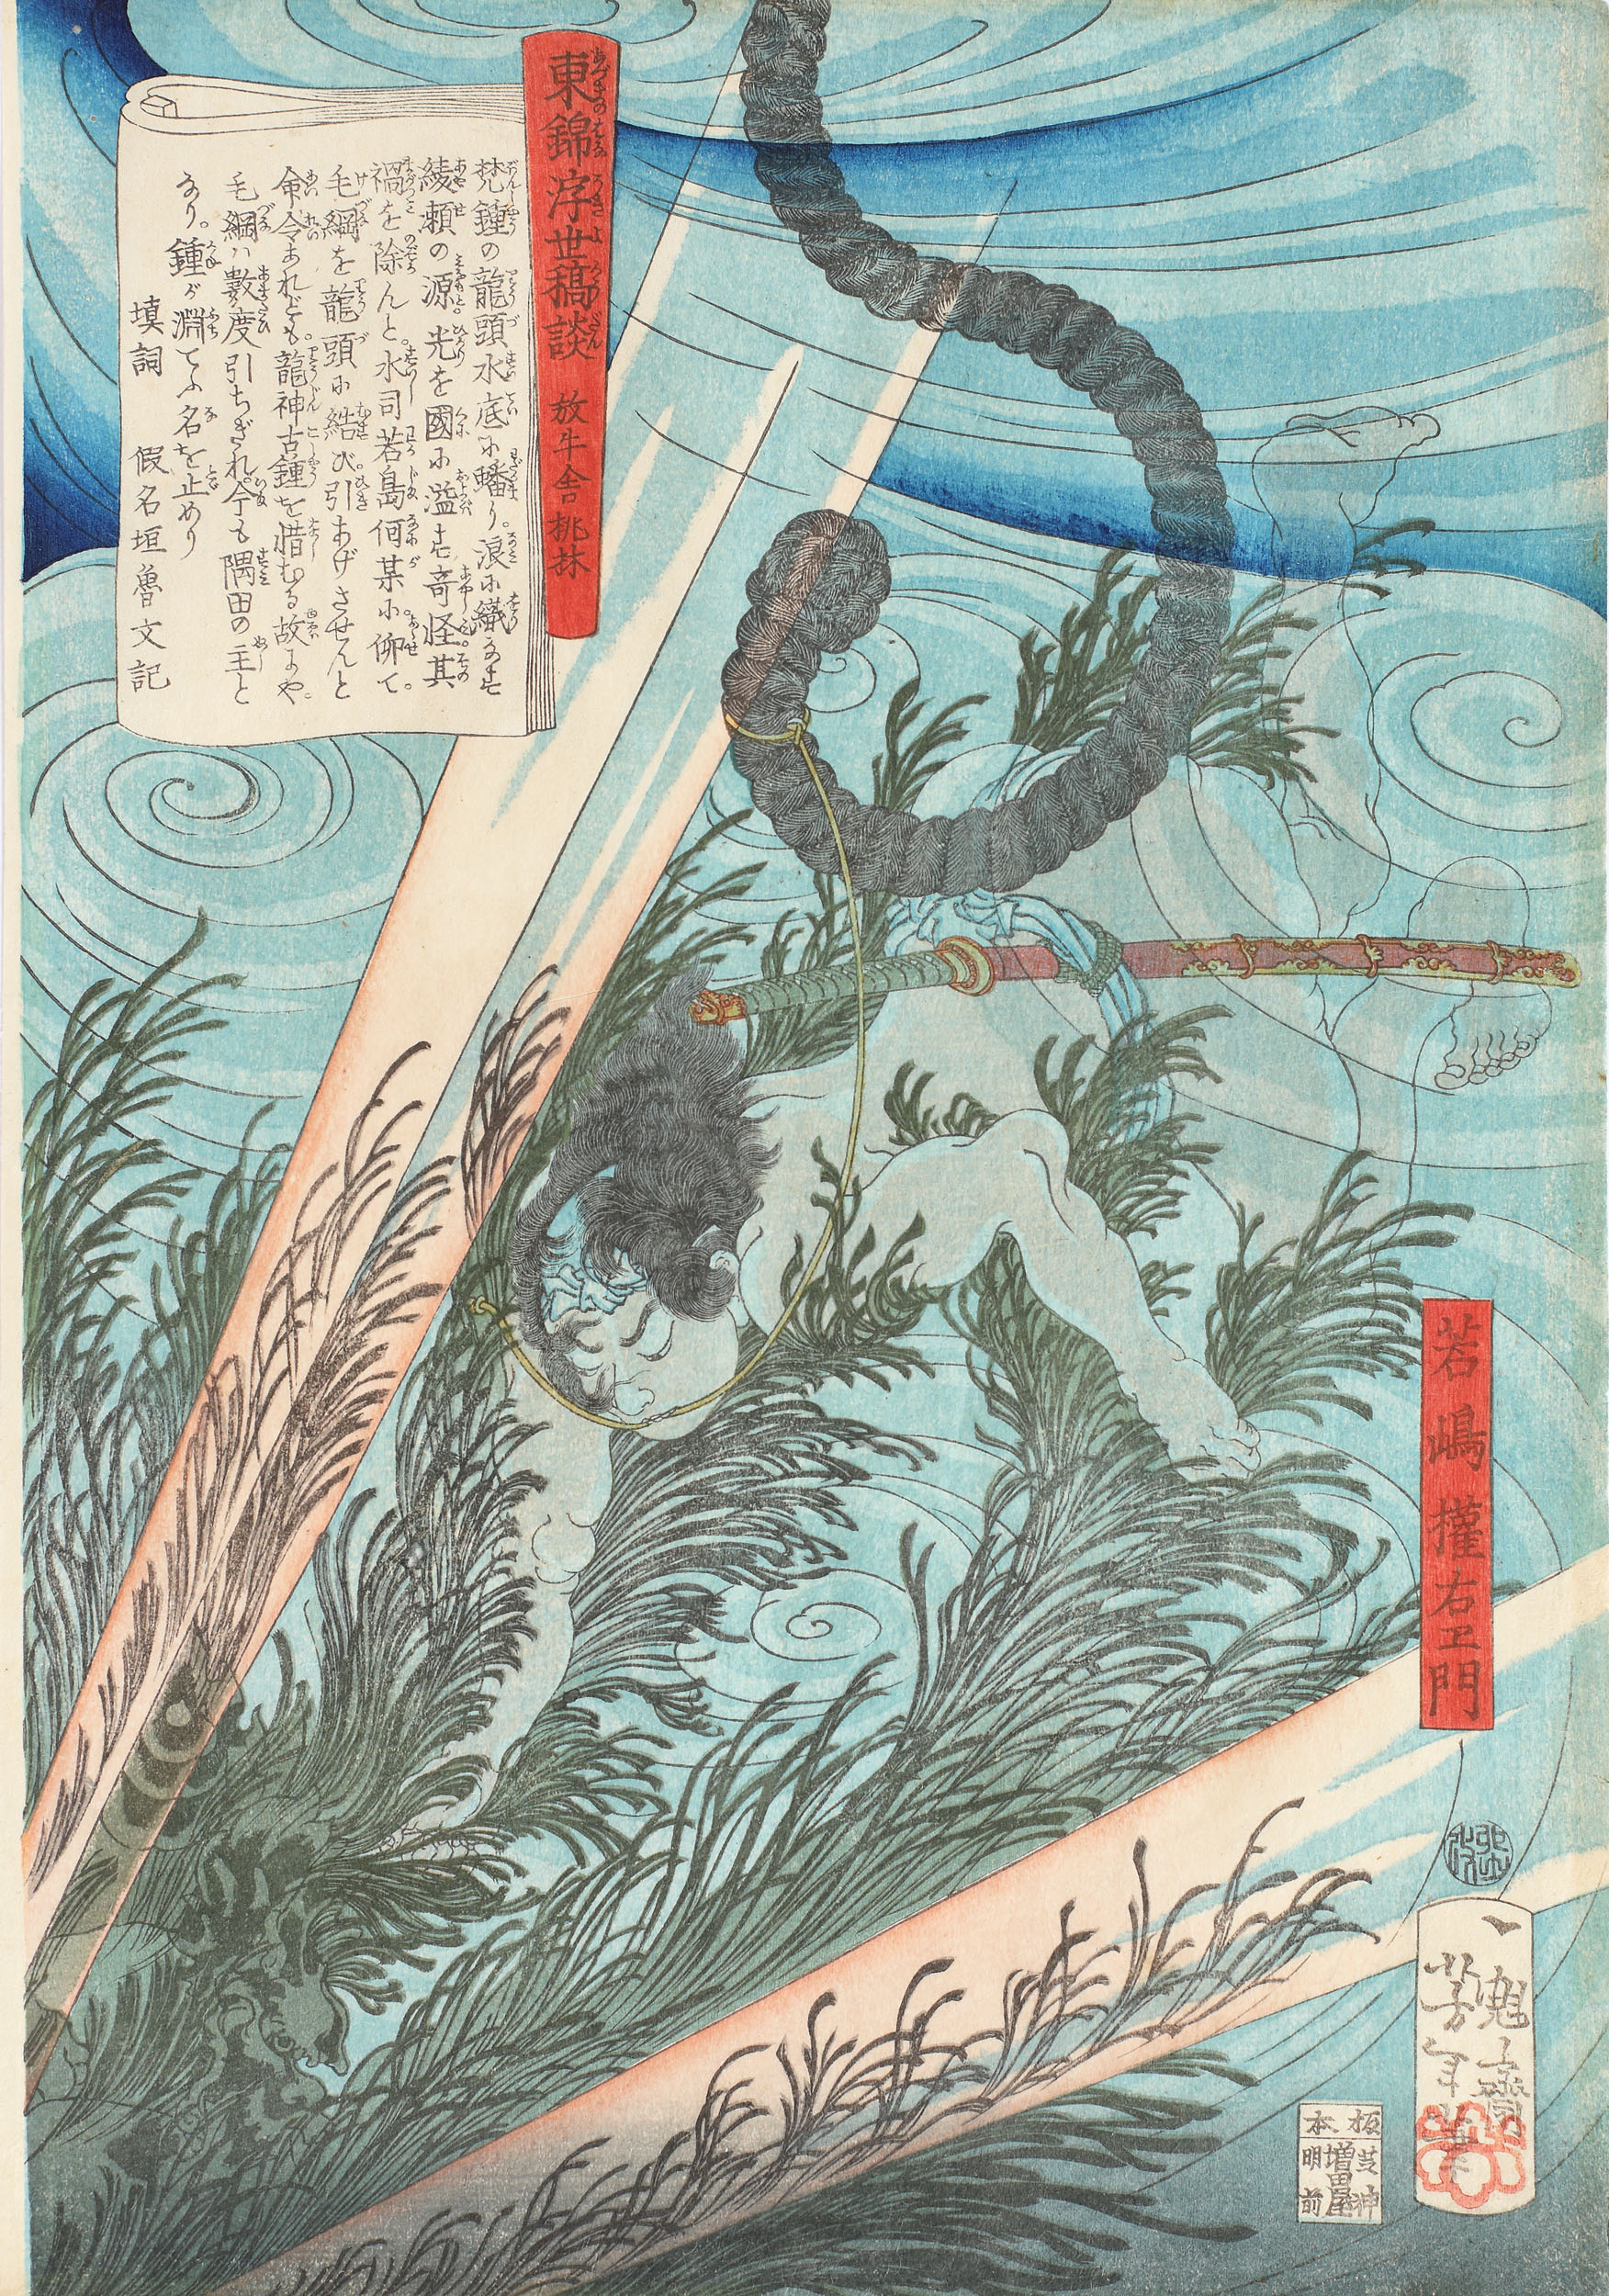 東錦浮世稿談 放牛舎桃林
梵鐘の龍頭水底に蟠り。浪に織なせ
綾瀬の源。光を國に溢せ。竒怪。其
禍を除んと。水司若島何某に仰て。
毛綱を龍頭に結び。引あげさせんと
命令あれども。龍神古鐘を惜むる故にや。
毛綱ハ數度引ちぎれ。今も隅田の主と
なり。鐘が淵てふ名を止めり
填詞 假名垣魯文記
若嶋權右エ門
一魁齋
芳年筆
板本
芝神明前
増田屋